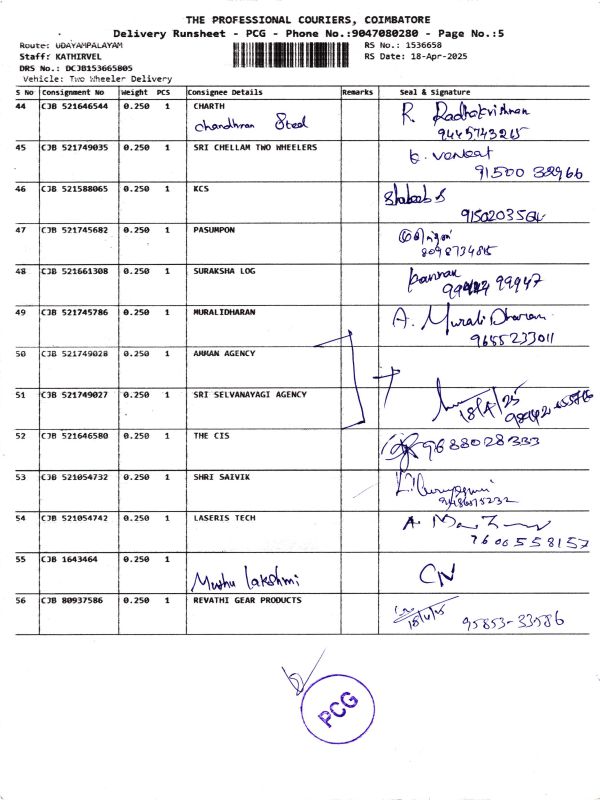 THE PROFESSIONAL COURIERS, COIMBATORE
Delivery Runsheet - PCG - Phone No.:9047080280 - Page No.:5
Route: UDAYAMPALAYAM RS No.: 1536658
Staff: KATHIRVEL RS Date: 18-Apr-2025
DRS No.: DCJB153665805
Vehicle: Two Wheeler Delivery
S No Consignment No Weight PCS Consignee Details Remarks Seal & Signature
44 CJB 521646544 0.250 1 CHARTH R. Radhakrishnan
Chandhran Steel 9445743215
45 CJB 521749035 0.250 1 SRI CHELLAM TWO WHEELERS K. Venkat
91500 38966
46 CJB 521588065 0.250 1 KCS
9150203564
47 CJB 521745682 0.250 1 PASUMPON
8098734815
48 CJB 521661308 0.250 1 SURAKSHA LOG Kannan
99947
49 CJB 521745786 0.250 1 MURALIDHARAN A. Murali Dharan
9655233011
50 CJB 521749028 0.250 1 AMMAN AGENCY
51 CJB 521749027 0.250 1 SRI SELVANAYAGI AGENCY 18/4/25
52 CJB 521646580 0.250 1 THE CIS 9688028333
53 CJB 521054732 0.250 1 SHRI SAIVIK
54 CJB 521054742 0.250 1 LASERIS TECH
7600558157
55 CJB 1643464 0.250 1
Muthu lakshmi
56 CJB 80937586 0.250 1 REVATHI GEAR PRODUCTS 18/4/25 95853-33586
PCG